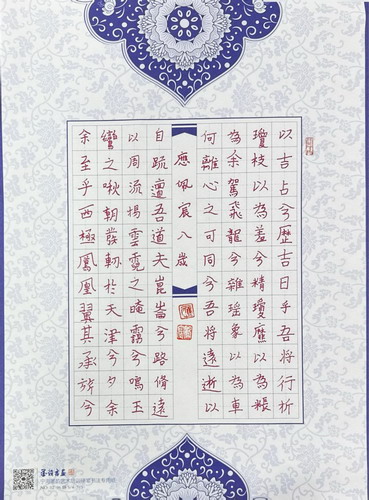 以吉占兮歷吉日乎吾將行折
瓊枝以為羞兮精瓊爢以為粻
為余駕飛龍兮雜瑶象以為車
何離心之可同兮吾將遠逝以
應佩宸八歲
自疏邅吾道夫崑崙兮路脩遠
以周流揚雲霓之晻靄兮鳴玉
鸞之啾朝發軔於天津兮夕余
余至乎西極鳳凰翼其承旂兮